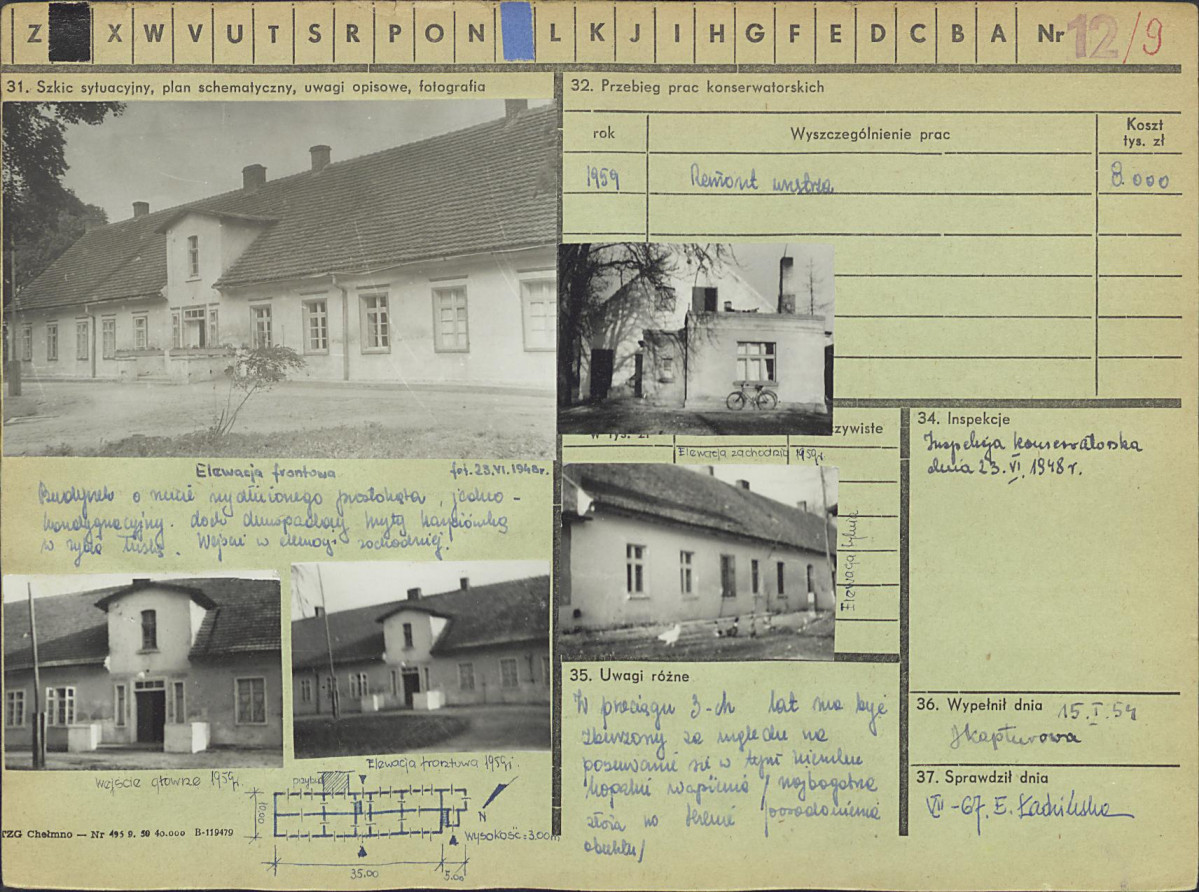 Z X W V U T S R P O N L K J I H G F E D C B A Nr 12/9
31. Szkic sytuacyjny, plan schematyczny, uwagi opisowe, fotografia
Elewacja frontowa fot. 23.VI.1948r.
Budynek o rzucie wydłużonego prostokąta, jedno-
kondygnacyjny. dach dwuspadowy kryty karpiówką
w rybią łuskę. Wejście w elewacji zachodniej.
Wejście główne 1959r.
Elewacja frontowa 1959r.
przybud
10.00
N
wysokość = 3.00m
35.00
5.00
TZG Chełmno – Nr 495 9. 59 40.000 B-119479
32. Przebieg prac konserwatorskich
rok Wyszczególnienie prac Koszt
tys. zł
1959 Remont wnętrza 8.000
w tys. zł zywiste
Elewacja zachodnia 1959r.
Elewacja tylnia
35. Uwagi różne
W przeciągu 3-ch lat ma być
zburzony ze względu na
posuwanie się w tejże kierunku
kopalni wapienia / najbogatsze
złoża na terenie posadowienia
obiektu /
34. Inspekcje
Inspekcja konserwatorska
dnia 23.VI.1948r.
36. Wypełnił dnia 15.I.59
JKapturowa
37. Sprawdził dnia
VII-67. E.